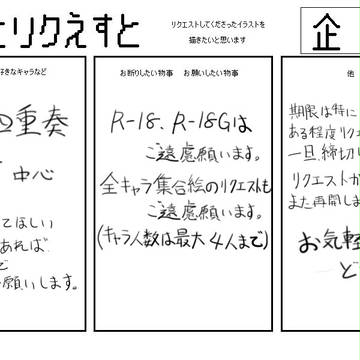 とリクえすと
リクエストしてくださったイラストを
描きたいと思います
企
好きなキャラなど
四重奏
中心
てほしい
あれば
で
願いします。
お断りしたい物事 お願いしたい物事
R-18、R-18Gは
ご遠慮願います。
全キャラ集合絵のリクエストも
ご遠慮願います。
(キャラ人数は最大4人まで)
他
期限は特に
ある程度リクエ
一旦、締切り
リクエストが
また再開しま
お気軽
ど